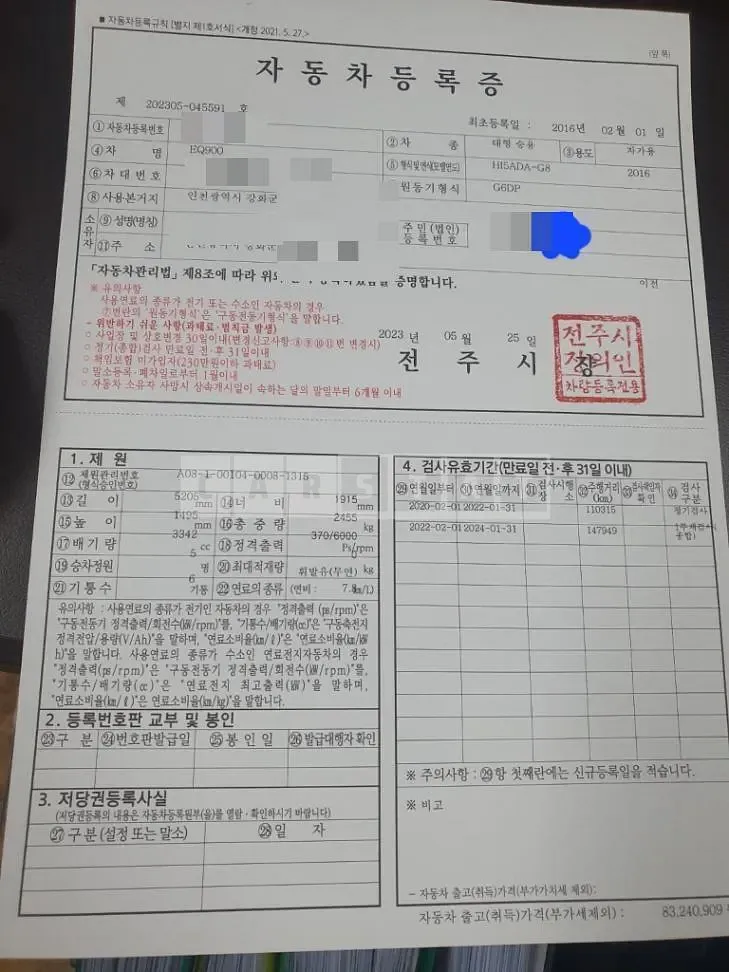 ■ 자동차등록규칙 [별지 제1호서식] <개정 2021. 5. 27.>
(앞 쪽)
자동차등록증
제 202305-045591 호
최초등록일 : 2016년 02월 01일
① 자동차등록번호 ② 차 종 대형 승용 ③ 용도 자가용
④ 차 명 EQ900 ⑤ 형식 및 연식(모델연도) HI5ADA-G8 2016
⑥ 차 대 번 호 원동기형식 G6DP
⑧ 사용본거지 인천광역시 강화군
소유자 ⑨ 성명(명칭) 주민(법인)등록번호
⑪ 주 소
이전
「자동차관리법」 제8조에 따라 위 증명합니다.
※ 유의사항
사용연료의 종류가 전기 또는 수소인 자동차의 경우
⑦번란의 '원동기형식'은 '구동전동기형식'을 말합니다.
- 위반하기 쉬운 사항(과태료·범칙금 발생)
○ 사업장 및 상호변경 30일이내(변경신고사항:⑧⑨⑩⑪번 변경시)
○ 정기(종합)검사 만료일 전·후 31일이내
○ 책임보험 미가입자(230만원이하 과태료)
○ 말소등록·폐차일로부터 1월이내
○ 자동차 소유자 사망시 상속개시일이 속하는 달의 말일부터 6개월 이내
2023 년 05 월 25 일
전 주 시 장
전주시
장의인
차량등록전용
1. 제 원
⑫ 제원관리번호(형식승인번호) A08-1-00104-0008-1315
⑬ 길 이 5205 mm ⑭ 너 비 1915 mm
⑮ 높 이 1495 mm ⑯ 총 중 량 2455 kg
⑰ 배 기 량 3342 cc ⑱ 정격출력 370/6000 Ps/rpm
⑲ 승차정원 5 명 ⑳ 최대적재량 kg
㉑ 기 통 수 6 기통 ㉒ 연료의 종류 휘발유(무연) (연비 : 7. km/L)
유의사항 : 사용연료의 종류가 전기인 자동차의 경우 "정격출력 (ps/rpm)"은
"구동전동기 정격출력/회전수(kW/rpm)"를, "기통수/배기량(cc)"은 "구동축전지
정격전압/용량(V/Ah)"을 말하며, "연료소비율(km/ℓ)"은 "연료소비율(km/kW
h)"을 말합니다. 사용연료의 종류가 수소인 연료전지자동차의 경우
"정격출력(ps/rpm)"은 "구동전동기 정격출력/회전수(kW/rpm)"를,
"기통수/배기량(cc)"은 "연료전지 최고출력(kW)"을 말하며,
"연료소비율(km/ℓ)"은 연료소비율(km/kg)"을 말합니다.
2. 등록번호판 교부 및 봉인
㉓ 구 분 ㉔ 번호판발급일 ㉕ 봉 인 일 ㉖ 발급대행자확인
3. 저당권등록사실
(저당권등록의 내용은 자동차등록원부(을)를 열람·확인하시기 바랍니다)
㉗ 구분 (설정 또는 말소) ㉘ 일 자
4. 검사유효기간(만료일 전·후 31일 이내)
㉙ 연월일부터 ㉚ 연월일까지 ㉛ 검사시행장소 ㉜ 주행거리(km) ㉝ 검사책임자확인 ㉞ 검사구분
2020-02-01 2022-01-31 110315 정기검사
2022-02-01 2024-01-31 147949
※ 주의사항 : ㉙항 첫째란에는 신규등록일을 적습니다.
※ 비고
- 자동차 출고(취득)가격(부가가치세 제외):
자동차 출고(취득)가격(부가세제외) : 83,240,909